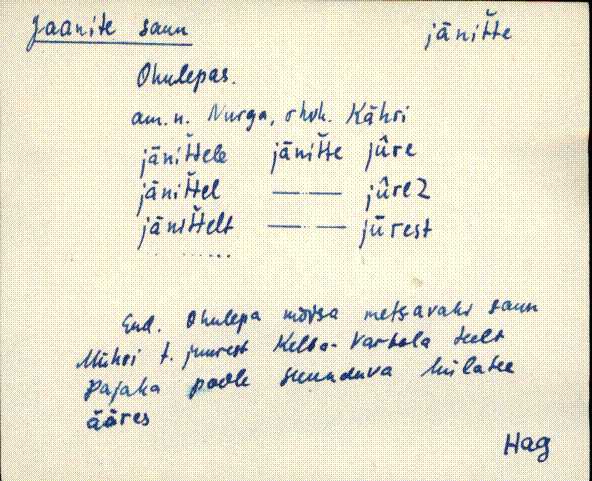 Jaanite saun
jänit̆te
Ohulepas.
am. n. Nurga, rhvk. Kähri
jänit̆tele jänit̆te jûre
jänit̆tel —"— jûrez
jänit̆telt —"— jūrest
......
End. Ohulepa mõisa metsavahi saun
Mihkri t. juurest Kelba-Vardala teelt
Pajaka poole suunduva külatee
ääres
Hag